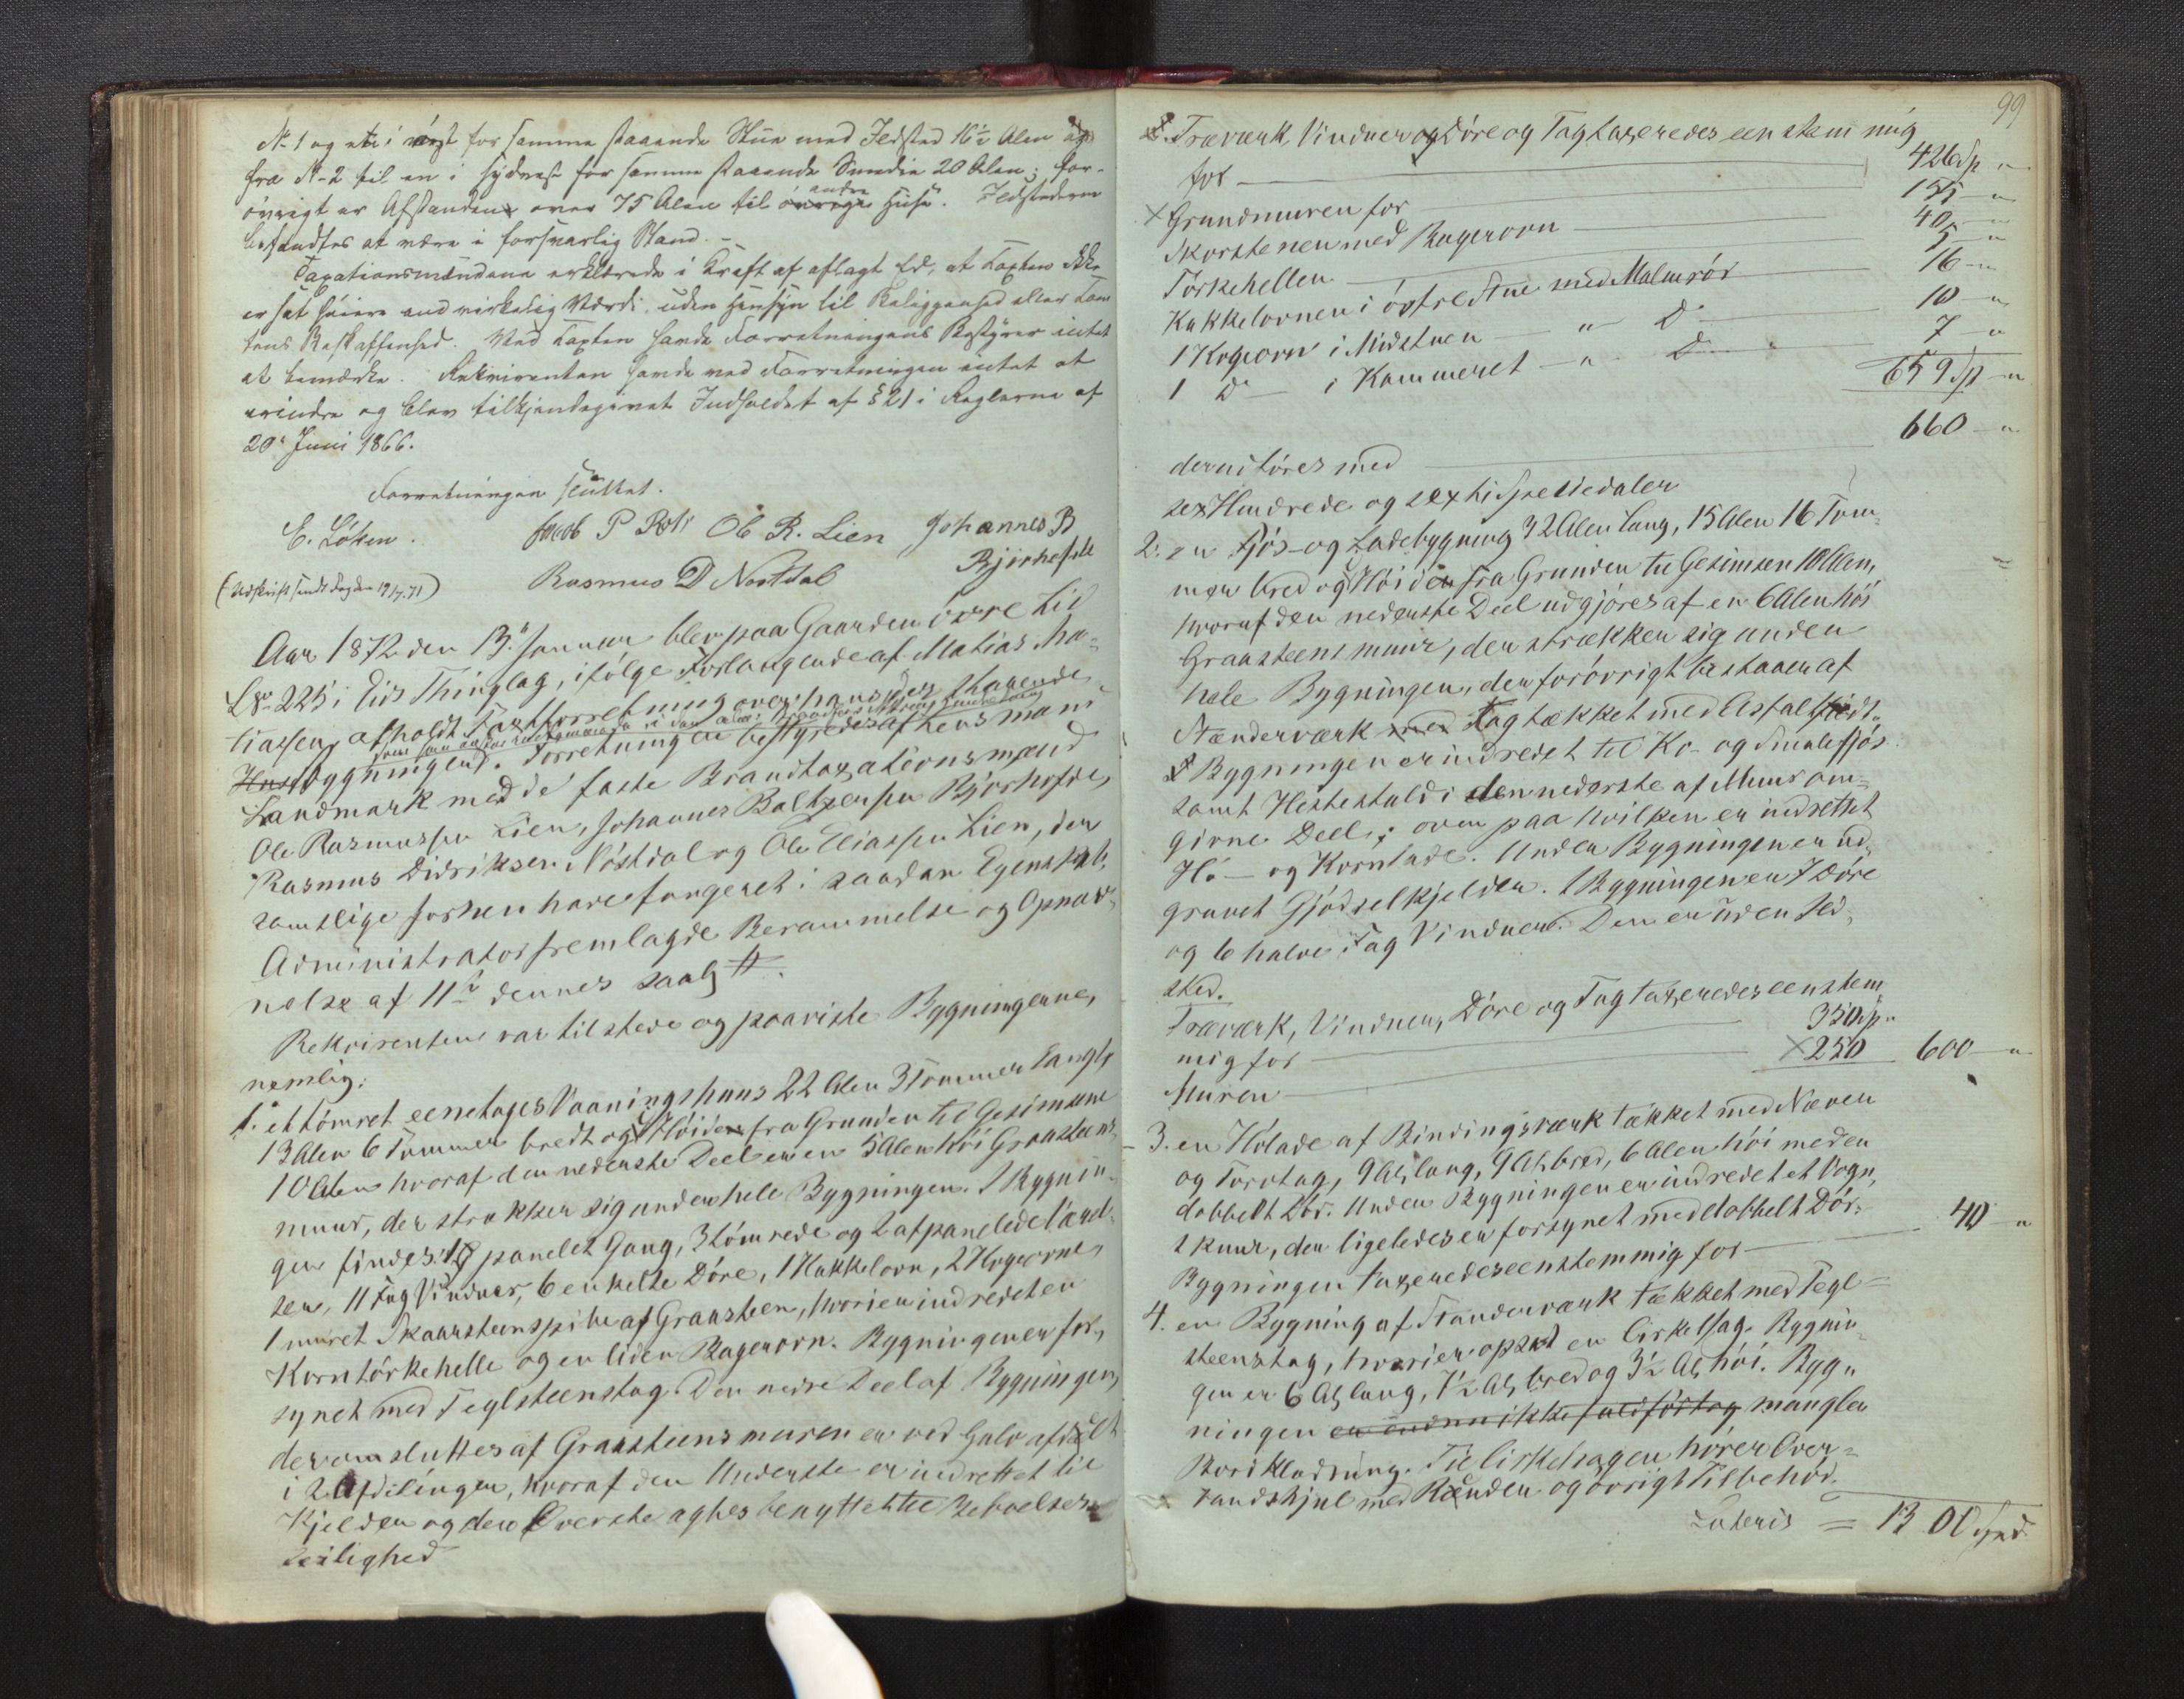 No 1 og et i vest for samme staaende Stue med Ildsted 16½ Alen og
fra No 2 til en i sydvest for samme staaende Smedie 20 Alen; for-
øvrigt er Afstanden over 75 Alen til øvrige andre Huse. Ildstederne
befandtes at være i forsvarlig Stand. –
Taxationsmændene erklærede i Kraft af aflagt Ed, at Taxten ikke
er sat høiere end virkelig Værdi uden Hensyn til Beliggenhed eller Tom
tens Beskaffenhed. Ved Taxten havde Forretningens Bestyrer intet
at bemærke. Rekvirenten havde ved Forretningen intet at
erindre og blev tilkjendegivet Indholdet af § 21 i Reglerne af
20de Juni 1866.
Forretningen sluttet.
E. Løken. Jacob P Roti Ole R. Lien Johannes B
Bjørhofde
(Udskrift sendt Dagen 19/7.71) Rasmus D Nøstdal
Aar 1872 den 13de Januar blev paa Gaarden øvre Lid
L No 225 i Eids Thinglag, ifølge Forlangende af Matias Ma-
tiassen, afholdt Taxtforretning over hans der staaende
Husebygninger. Forretningen bestyredes af Lensmand
Landmark med de faste Brandtaxationsmænd
Ole Rasmussen Lien, Johannes Baltzersen Bjørhofde,
Rasmus Didriksen Nøstdal og Ole Eliassen Lien, der
samtlige forhen have fungeret i saadan Egenskab.
Administrator fremlagde Berammelse og Opnæv-
nelse af 11te dennes saal. #.
Rekvirenten var tilstede og paaviste Bygningerne,
nemlig:
1. et tømret eenetages Vaaningshuus 22 Alen 3 Tommer langt,
13 Alen 6 Tommer bredt og Høiden fra Grunden til Gesimsene
10 Alen hvoraf den nederste Deel er en 5 Alen høi Graasteens-
muur, der strækker sig under hele Bygningen. I Bygnin-
gen findes: 1 panelet Gang, 3 tømrede og 2 afpanelede Værel-
ser, 11 Fag Vinduer, 6 enkelte Døre, 1 Kakkelovn, 2 Kogeovne,
1 muret Skaarsteenspibe af Graasteen, hvori er indredet en
Korntørkehelle og en liden Bagerovn. Bygningen er for-
synet med Teglsteenstag. Den nedre Deel af Bygningen,
der omsluttes af Graasteensmuren er ved Gulv afdeelt
i 2 Afdelinger, hvoraf den Underste er indrettet til
Kjelder og den Øverste agtes benyttet til Beboelses-
leilighed
99
Træværk Vinduer og Døre og Tag taxeredes eenstemmig
for 426 Sp "
× Grundmuren for 155 – "
Skorstenen med Bagerovn 40 – "
Tørkehellen 5 – "
Kakkelovnen i østre Stue med Malmrør 16 – "
1 Kogeovn i Midstuen – " Do 10 – "
1 Do – i Kammeret – " Do 7 – "
659 Sp – "
660 – "
der utføres med
sex Hundrede og sexti Speciedaler
2. en Fjøs- og Ladebygning 32 Alen lang, 15 Alen 16 Tom-
mer bred og Høiden fra Grunden til Gesimsen 10 Alen,
hvoraf den nederste Deel udgjøres af en 6 Alen høi
Graasteensmuur, der strækker sig under
hele Bygningen, der forøvrigt bestaaer af
Stænderværk med Tag tækket med Asfaltfildt.
I Bygningen er indredet til Ko- og Smalefjøs
samt Hestestald i den nederste af Muur om-
givne Deel; oven paa hvilken er indrettet
Hø- og Kornlade. Under Bygningen er ud-
gravet Gjødselkjelder. I Bygningen er 7 Døre
og 6 halve Fag Vinduer. Den er uden Ild-
sted.
Træværk, Vinduer, Døre og Tag taxeredes eenstem-
mig for 350 Sp "
Muren × 250 600 – "
3. en Hølade af Bindingsværk tækket med Næver
og Torvtag, 9 Al. lang, 9 Al. bred, 6 Alen høi med en
dobbelt Dør. Under Bygningen er indredet et Vogn-
skuur, der ligeledes er forsynet med dobbelt Dør.
Bygningen taxeredes eenstemmig for 40 – "
4. en Bygning af Stænderværk tækket med Tegl-
steenstag, hvori er opsat en Cirkelsag. Bygnin-
gen er 6 Al. lang, 7½ Al. bred og 3½ Al. høi. Byg-
ningen er endnu ikke fuldført og mangler
Bordklædning. Til Cirkelsagen hører Over-
vandshjul med Render og øvrigt Tilbehør.
Lateris = 1300 Spd